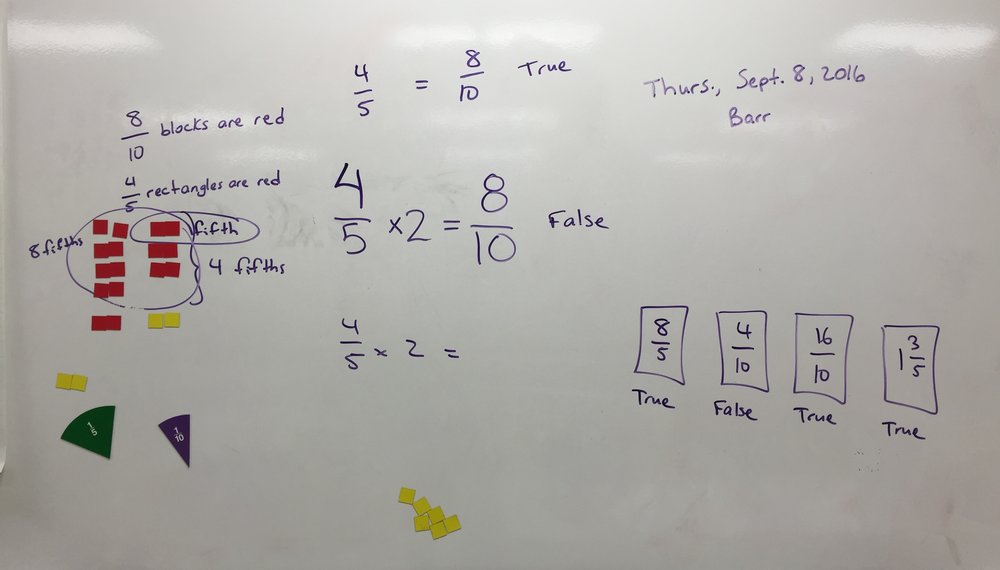 4/5 = 8/10 True
Thurs., Sept. 8, 2016
Barr
8/10 blocks are red
4/5 rectangles are red
8 fifths
fifth
4 fifths
4/5 ×2 = 8/10 False
4/5 × 2 =
8/5 True
4/10 False
16/10 True
1 3/5 True
1/5
1/10